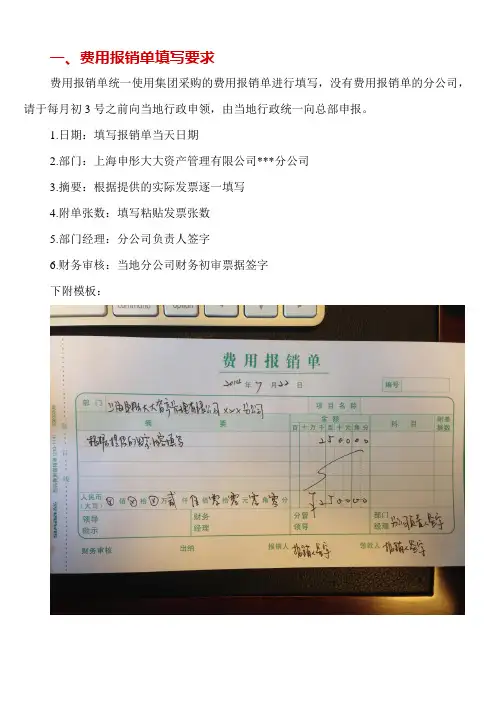 一、费用报销单填写要求
费用报销单统一使用集团采购的费用报销单进行填写，没有费用报销单的分公司，
请于每月初3号之前向当地行政申领，由当地行政统一向总部申报。
1.日期：填写报销单当天日期
2.部门：上海申彤大大资产管理有限公司***分公司
3.摘要：根据提供的实际发票逐一填写
4.附单张数：填写粘贴发票张数
5.部门经理：分公司负责人签字
6.财务审核：当地分公司财务初审票据签字
下附模板：
command option
费用报销单
2014 年 7 月 22 日 编号
部门 上海申彤大大资产管理有限公司xxx分公司 项目名称
摘要 金额 科目 附单张数
百十万千百十元角分
根据提供的实际内容填写 250000
人民币（大写） ⊗佰⊗拾⊗万贰仟伍佰零拾零元零角零分 ￥250000
领导批示 财务经理 分管领导 部门经理 分公司负责人签字
财务审核 出纳 报销人 报销人签字 领款人 报销人签字